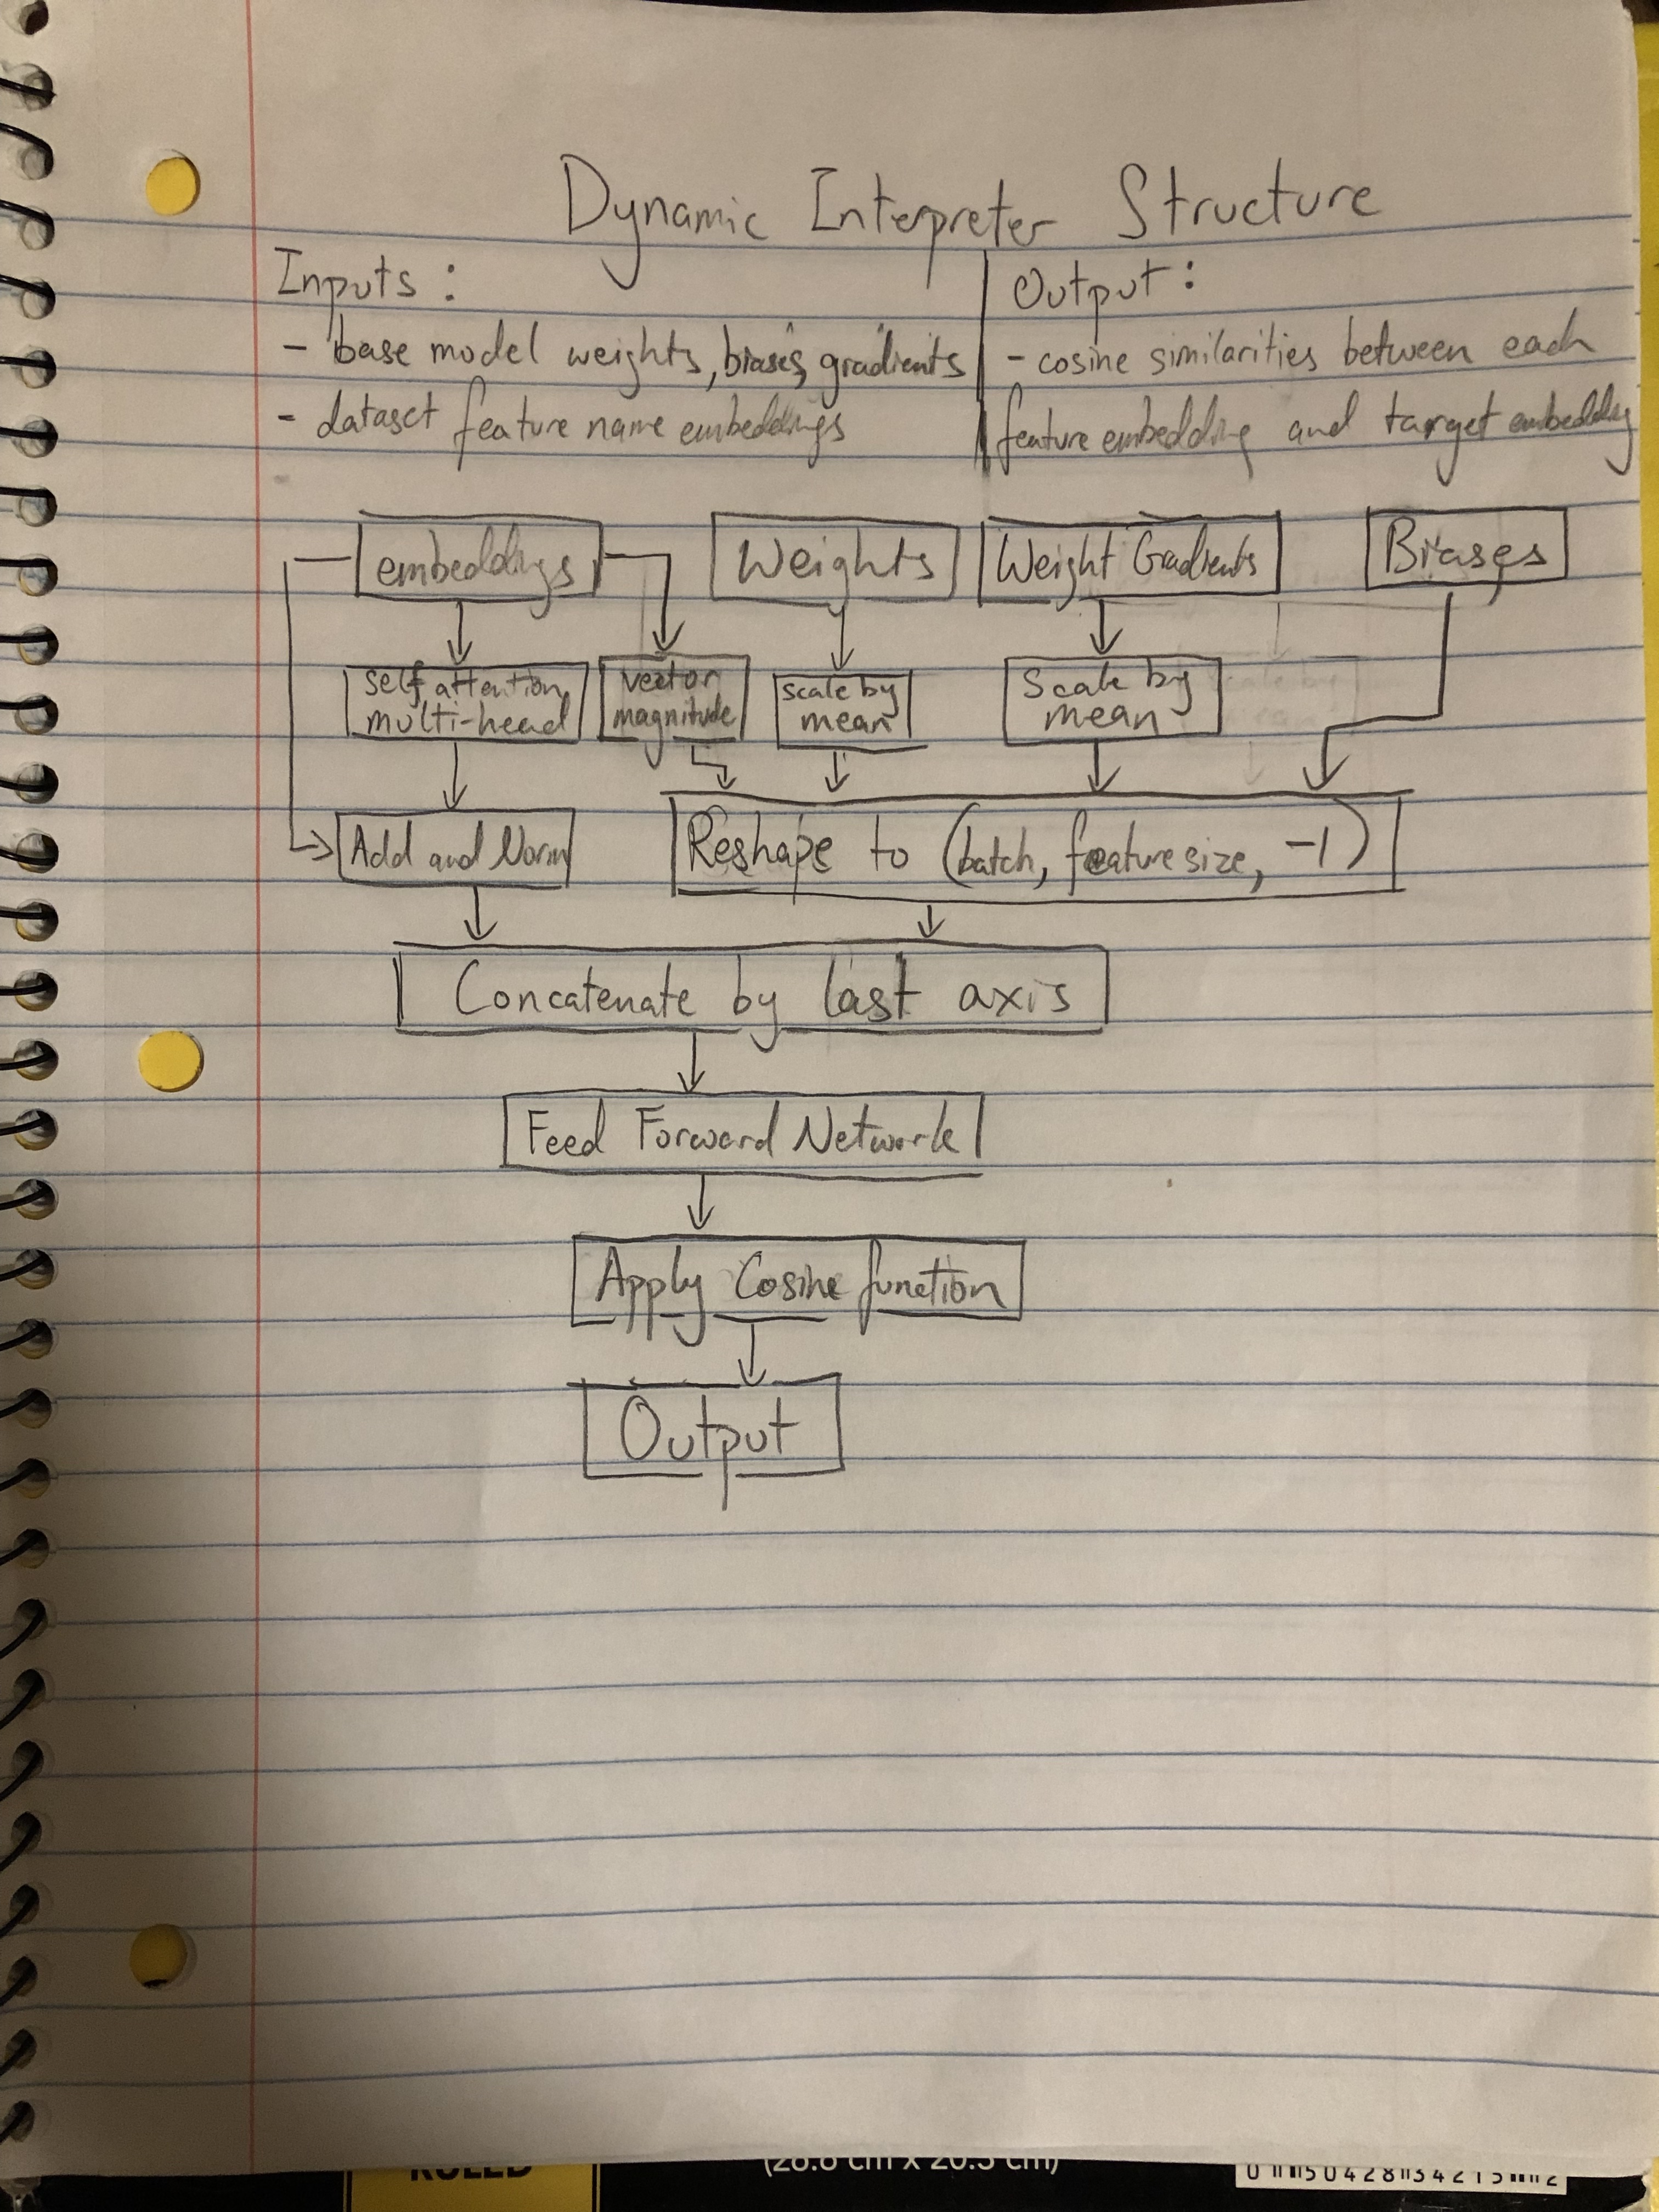 Dynamic Interpreter Structure
Inputs :
- base model weights, biases, gradients
- dataset feature name embeddings
Output :
- cosine similarities between each
feature embedding and target embedding
embeddings
Weights
Weight Gradients
Biases
self attention,
multi-head
vector
magnitude
scale by
mean
Scale by
mean
Add and Norm
Reshape to (batch, feature size, -1)
Concatenate by last axis
Feed Forward Network
Apply Cosine function
Output
RULED
(26.6 cm x 20.3 cm)